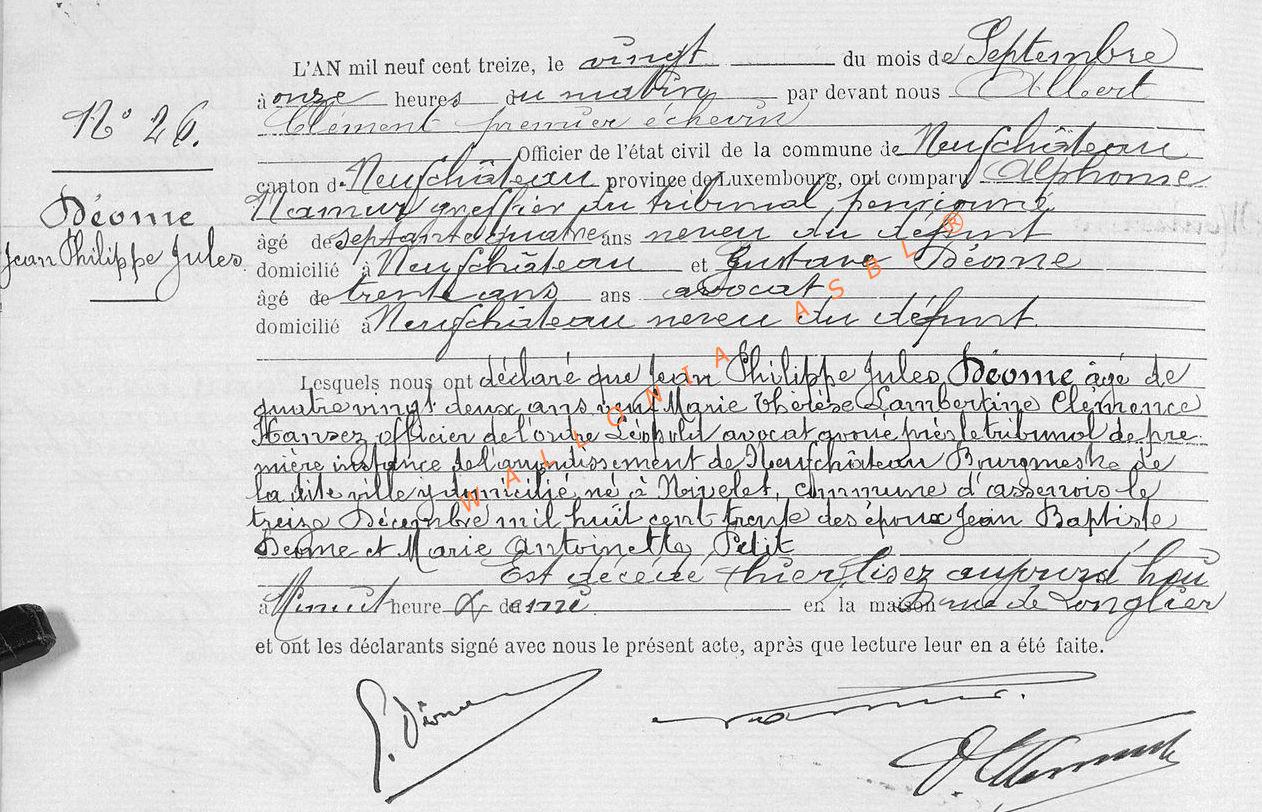 L'AN mil neuf cent treize, le vingt du mois de Septembre
à onze heures du matin par devant nous Albert
Clément premier échevin
N° 26.
Officier de l'état civil de la commune de Neufchâteau
canton de Neufchâteau province de Luxembourg, ont comparu Alphonse
Namur greffier du tribunal pensionné
Déome
Jean Philippe Jules
âgé de septante quatre ans neveu du défunt
domicilié à Neufchâteau et Gustave Déome
âgé de trente ans ans avocat
domicilié à Neufchâteau neveu du défunt
Lesquels nous ont déclaré que Jean Philippe Jules Déome âgé de
quatre vingt deux ans veuf Marie Thérèse Lambertine Clémence
Hansez officier de l'ordre Léopold avocat avoué près le tribunal de pre-
mière instance de l'arrondissement de Neufchâteau Bourgmestre de
la dite ville y domicilié, né à Nivelet, commune d'assenois le
treize Décembre mil huit cent trente des époux Jean Baptiste
Deome et Marie Antoinette Petit
Est décédé hier lisez aujourd'hui
à Minuit heure & demi en la maison rue de Longlier
et ont les déclarants signé avec nous le présent acte, après que lecture leur en a été faite.
G. Déome
WALLONIA ASBL ®